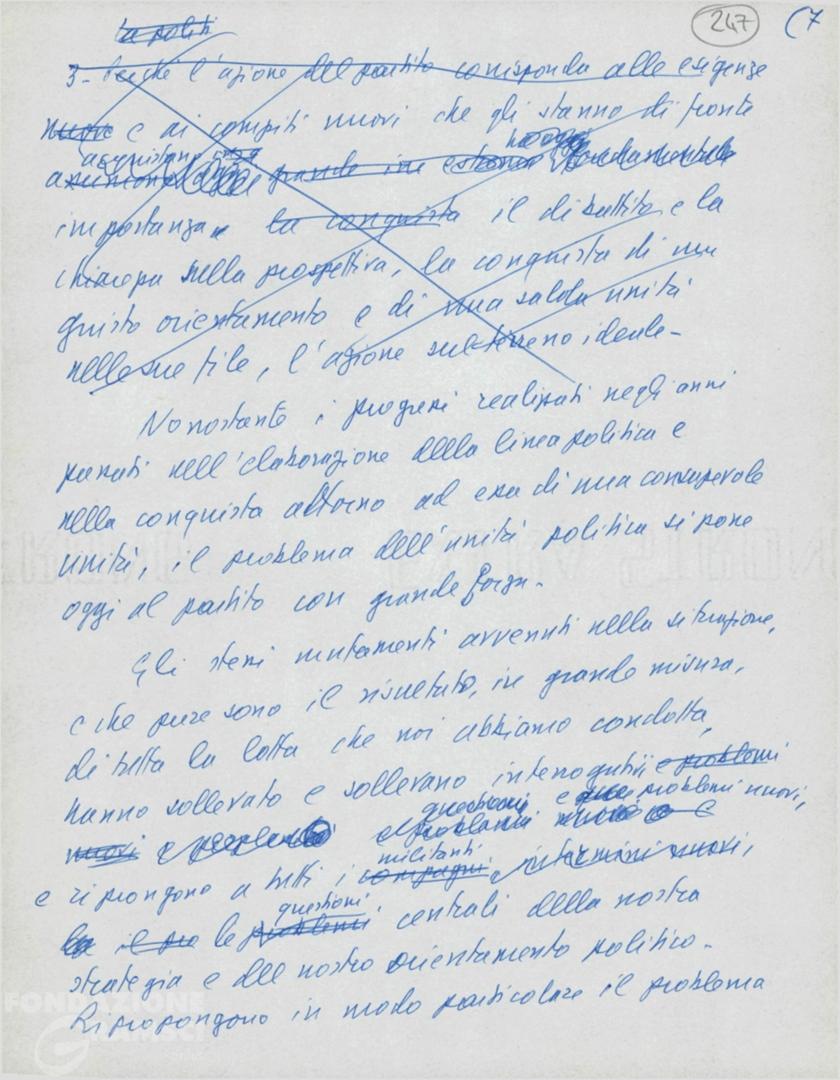 247 (7
La politi
3 - Perché l'azione del partito corrisponda alle esigenze
nuove e ai compiti nuovi che gli stanno di fronte
acquistano oggi
assumono grande importanza fondamentale
importanza la conquista il dibattito e la
chiarezza sulla prospettiva, la conquista di un
giusto orientamento e di una salda unità
nelle sue file, l'azione sul terreno ideale -
Nonostante i progressi realizzati negli anni
passati nell'elaborazione della linea politica e
nella conquista attorno ad essa di una consapevole
unità, il problema dell'unità politica si pone
oggi al partito con grande forza -
Gli stessi mutamenti avvenuti nella situazione,
e che pure sono il risultato, in grande misura,
di tutta la lotta che noi abbiamo condotta,
hanno sollevato e sollevano interrogativi e problemi
questioni e problemi nuovi,
nuovi e problemi nuovi e
militanti
e ripongono a tutti i compagni in termini nuovi,
questioni
la il le problemi centrali della nostra
strategia e del nostro orientamento politico -
Ripropongono in modo particolare il problema
FONDAZIONE
GRAMSCI